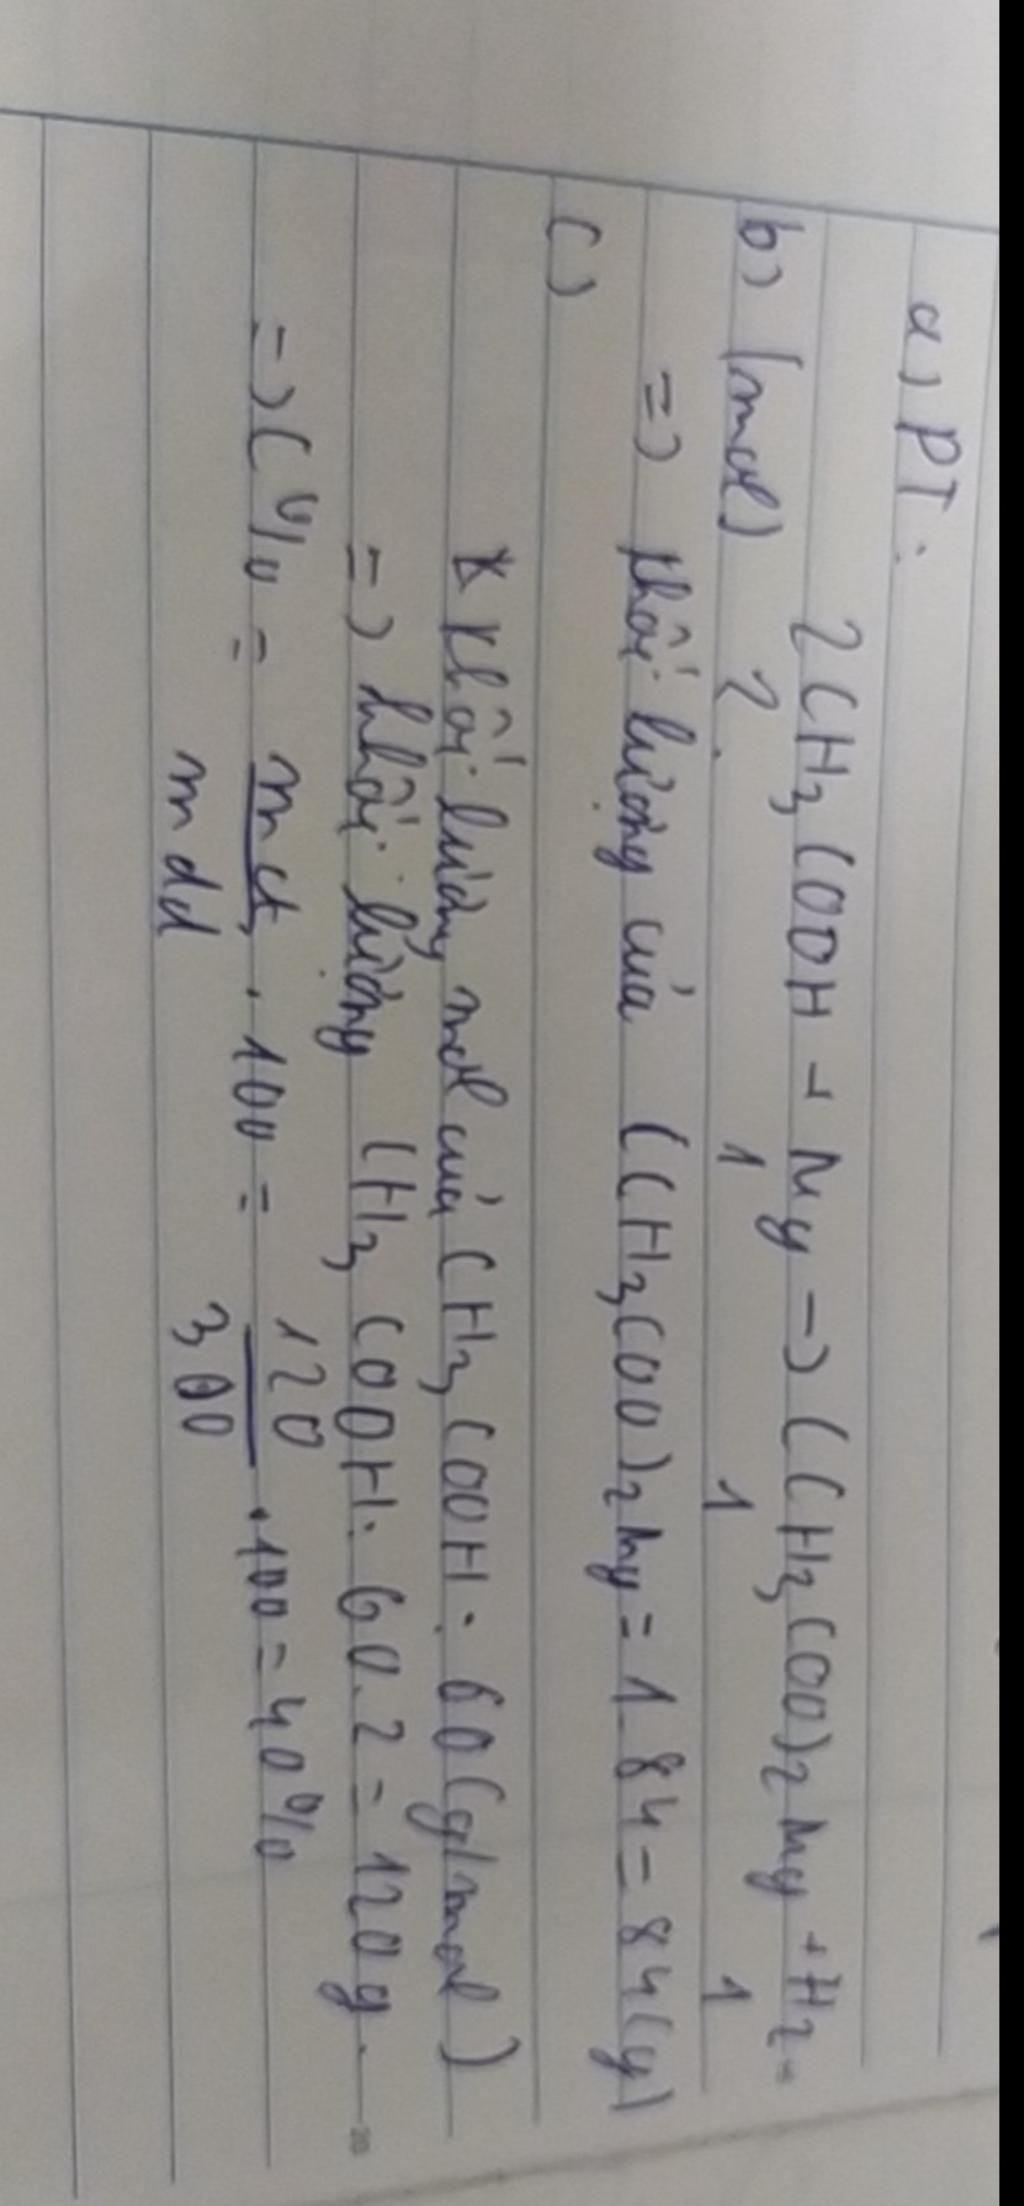 a) PT:
2CH3COOH + Mg -> (CH3COO)2Mg + H2
b) (mol) 2 1 1 1
=> khối lượng của (CH3COO)2Mg = 1.84 = 84(g)
c)
* Khối lượng mol của CH3COOH: 60(g/mol)
=> khối lượng CH3COOH: 60.2 = 120g.
=> C% = mct/mdd . 100 = 120/300 . 100 = 40%
20